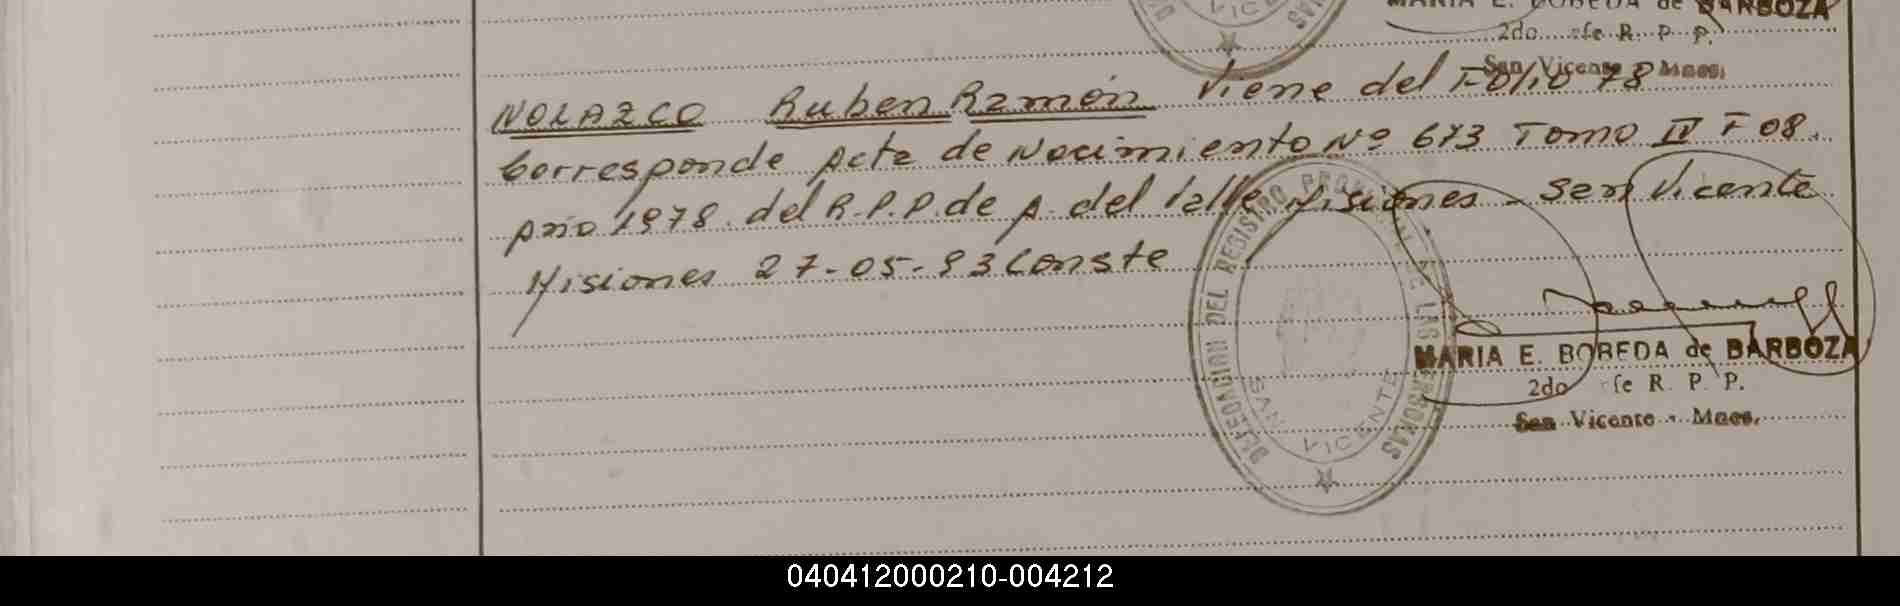 MARIA E. BOBEDA de BARBOZA
2do fe R. P. P.
San Vicente Mnes.
NOLAZCO Ruben Ramón Viene del Folio 78
Corresponde Acta de Nacimiento Nº 673 Tomo IV F 08.
Año 1978. del R.P.P. de A. del Valle Misiones - San Vicente
Misiones 27-05-93 Conste
DELEGACION DEL REGISTRO PROVINCIAL DE LAS PERSONAS
SAN VICENTE
MARIA E. BOBEDA de BARBOZA
2do fe R. P. P.
San Vicente - Mnes.
040412000210-004212